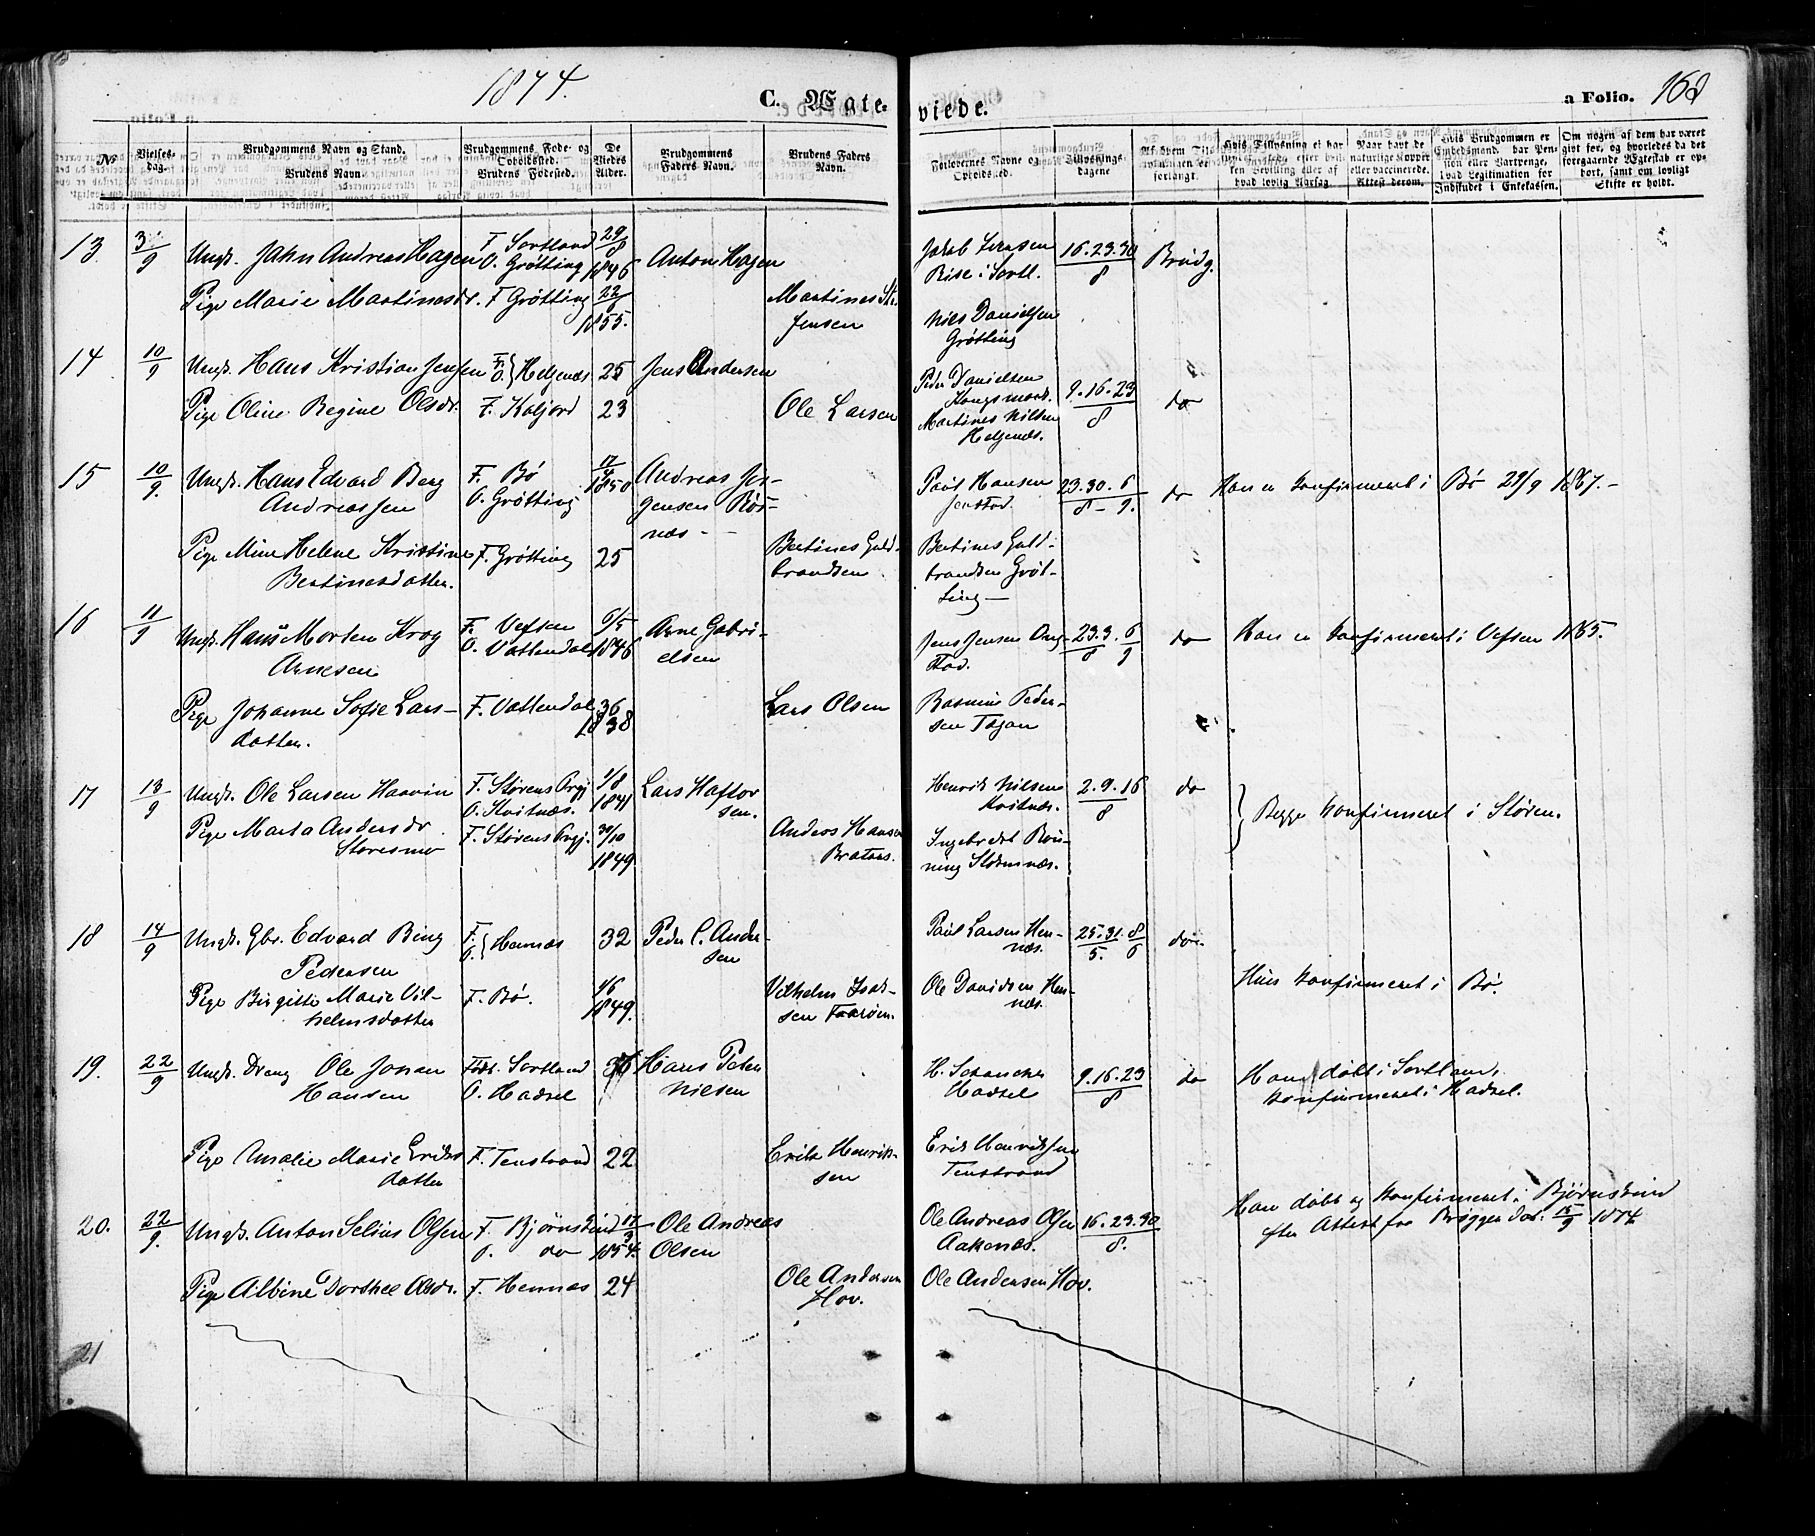 1874.
C. Ægte-
viede.
a Folio. 168
№
Vielses-
dag.
Brudgommens Navn og Stand.
Brudens Navn.
Brudgommens Føde- og
Opholdssted.
Brudens Fødested.
De
Viedes
Alder.
Brudgommens
Faders Navn.
Brudens Faders
Navn.
Forlovernes Navne og
Opholdssted.
Tillysnings-
dagene
Af hvem Til-
lysningen er
forlangt.
Naar havt de
naturlige Kopper
eller vaccinerede.
Attest derom.
Hvis Brudgommen er
Embedsmand, har Pen-
sion eller Vartpenge,
hvad Legitimation for
Indskudet i Enkekassen.
Om nogen af dem har været
gift før, og hvorledes da det
foregaaende Ægteskab er op-
hørt, samt om lovligt
Skifte er holdt.
13. 3/9 Ungk. Jahn Andreas Hagen F. Sortland O. Grøtting 29/8 1846 Anton Hagen Jakob Rise i Sortl. 16.23.30/8 Brudg.
Pige Marie Martinesdr. F. Grøtting 1855. Martines Jensen Nils Danielsen Grøtting
14 10/9 Ungk. Hans Kristian Jensen F. O. } Helgenæs 25 Jens Andersen Peder Danielsen 9.16.23/8 do
Pige Oline Regine Olsdr. F. Kaljord 23 Ole Larsen Martines Nilsen Helgenæs.
15 10/9. Ungk. Hans Edvard Berg Andreassen F. Bø O. Grøtting 17/4 1850 Andreas Jørgensen Paul Hansen 23.30.6/8-9. do Han er konfirmeret i Bø 29/9 1867.-
Pige Mine Helene Kristine Bertinesdatter. F. Grøtting 25 Bertines Guldbrandsen Bertines Guldbrandsen Grøtting
16 11/9 Ungk. Hans Morten Krog Arnesen F. Vefsen O. Vattendal 6/5 1846 Arne Gabrielsen Jens Jensen 23.3.6/8 9 do Han er konfirmeret i Vefsen 1865.
Pige Johanne Sofie Larsdatter. F. Vattendal 36 1838 Lars Olsen Rasmus Pedersen
17 13/9 Ungk. Ole Larsen F. Størens Prgj. O. Kvitnæs. 1/8 1841 Lars Haftorsen. Henrik Nilsen Kvitnæs. 2.9.16/8 do } Begge konfirmeret i Støren.
Pige Marta Andersdr Storesmo F. Størens Prgj. 30/10 1849 Anders Hansen Ingebrekt
18 14/9 Ungk. Gbr. Edvard Bing Pedersen F. O. } Hennæs 32 Peder C. Andersen Paul Larsen Hennæs. 25.31.8/5. 6 do
Pige Birgitte Marie Vilhelmsdatter F. Bø. 1849. Vilhelm Ole Davidsen Hennæs. Hun konfirmeret i Bø.
19. 22/9 Ungk. Dreng Ole Johan Hansen Sortland O. Hadsel 36 Hans Peter Nilsen H. Schancke Hadsel 9.16.23/8 do Han døbt i Sortland, konfirmeret i Hadsel.
Pige Amalie Marie Eriksdatter F. Tenstrand 22 Erik Henriksen Erik Henriksen Tenstrand
20. 22/9. Ungk. Anton Selius Olsen F. Bjørnskind O. do 17/3 1854. Ole Andreas Olsen Ole Andreas Olsen Aakenæs. 16.23.30/8. Han døbt og konfirmeret i Bjørnskind efter Attest fra Brøgger dat: 15/9 1874.
Pige Albine Dorthea Olsdr. F. Hennæs 24 Ole Andersen Hov. Ole Andersen Hov.
21